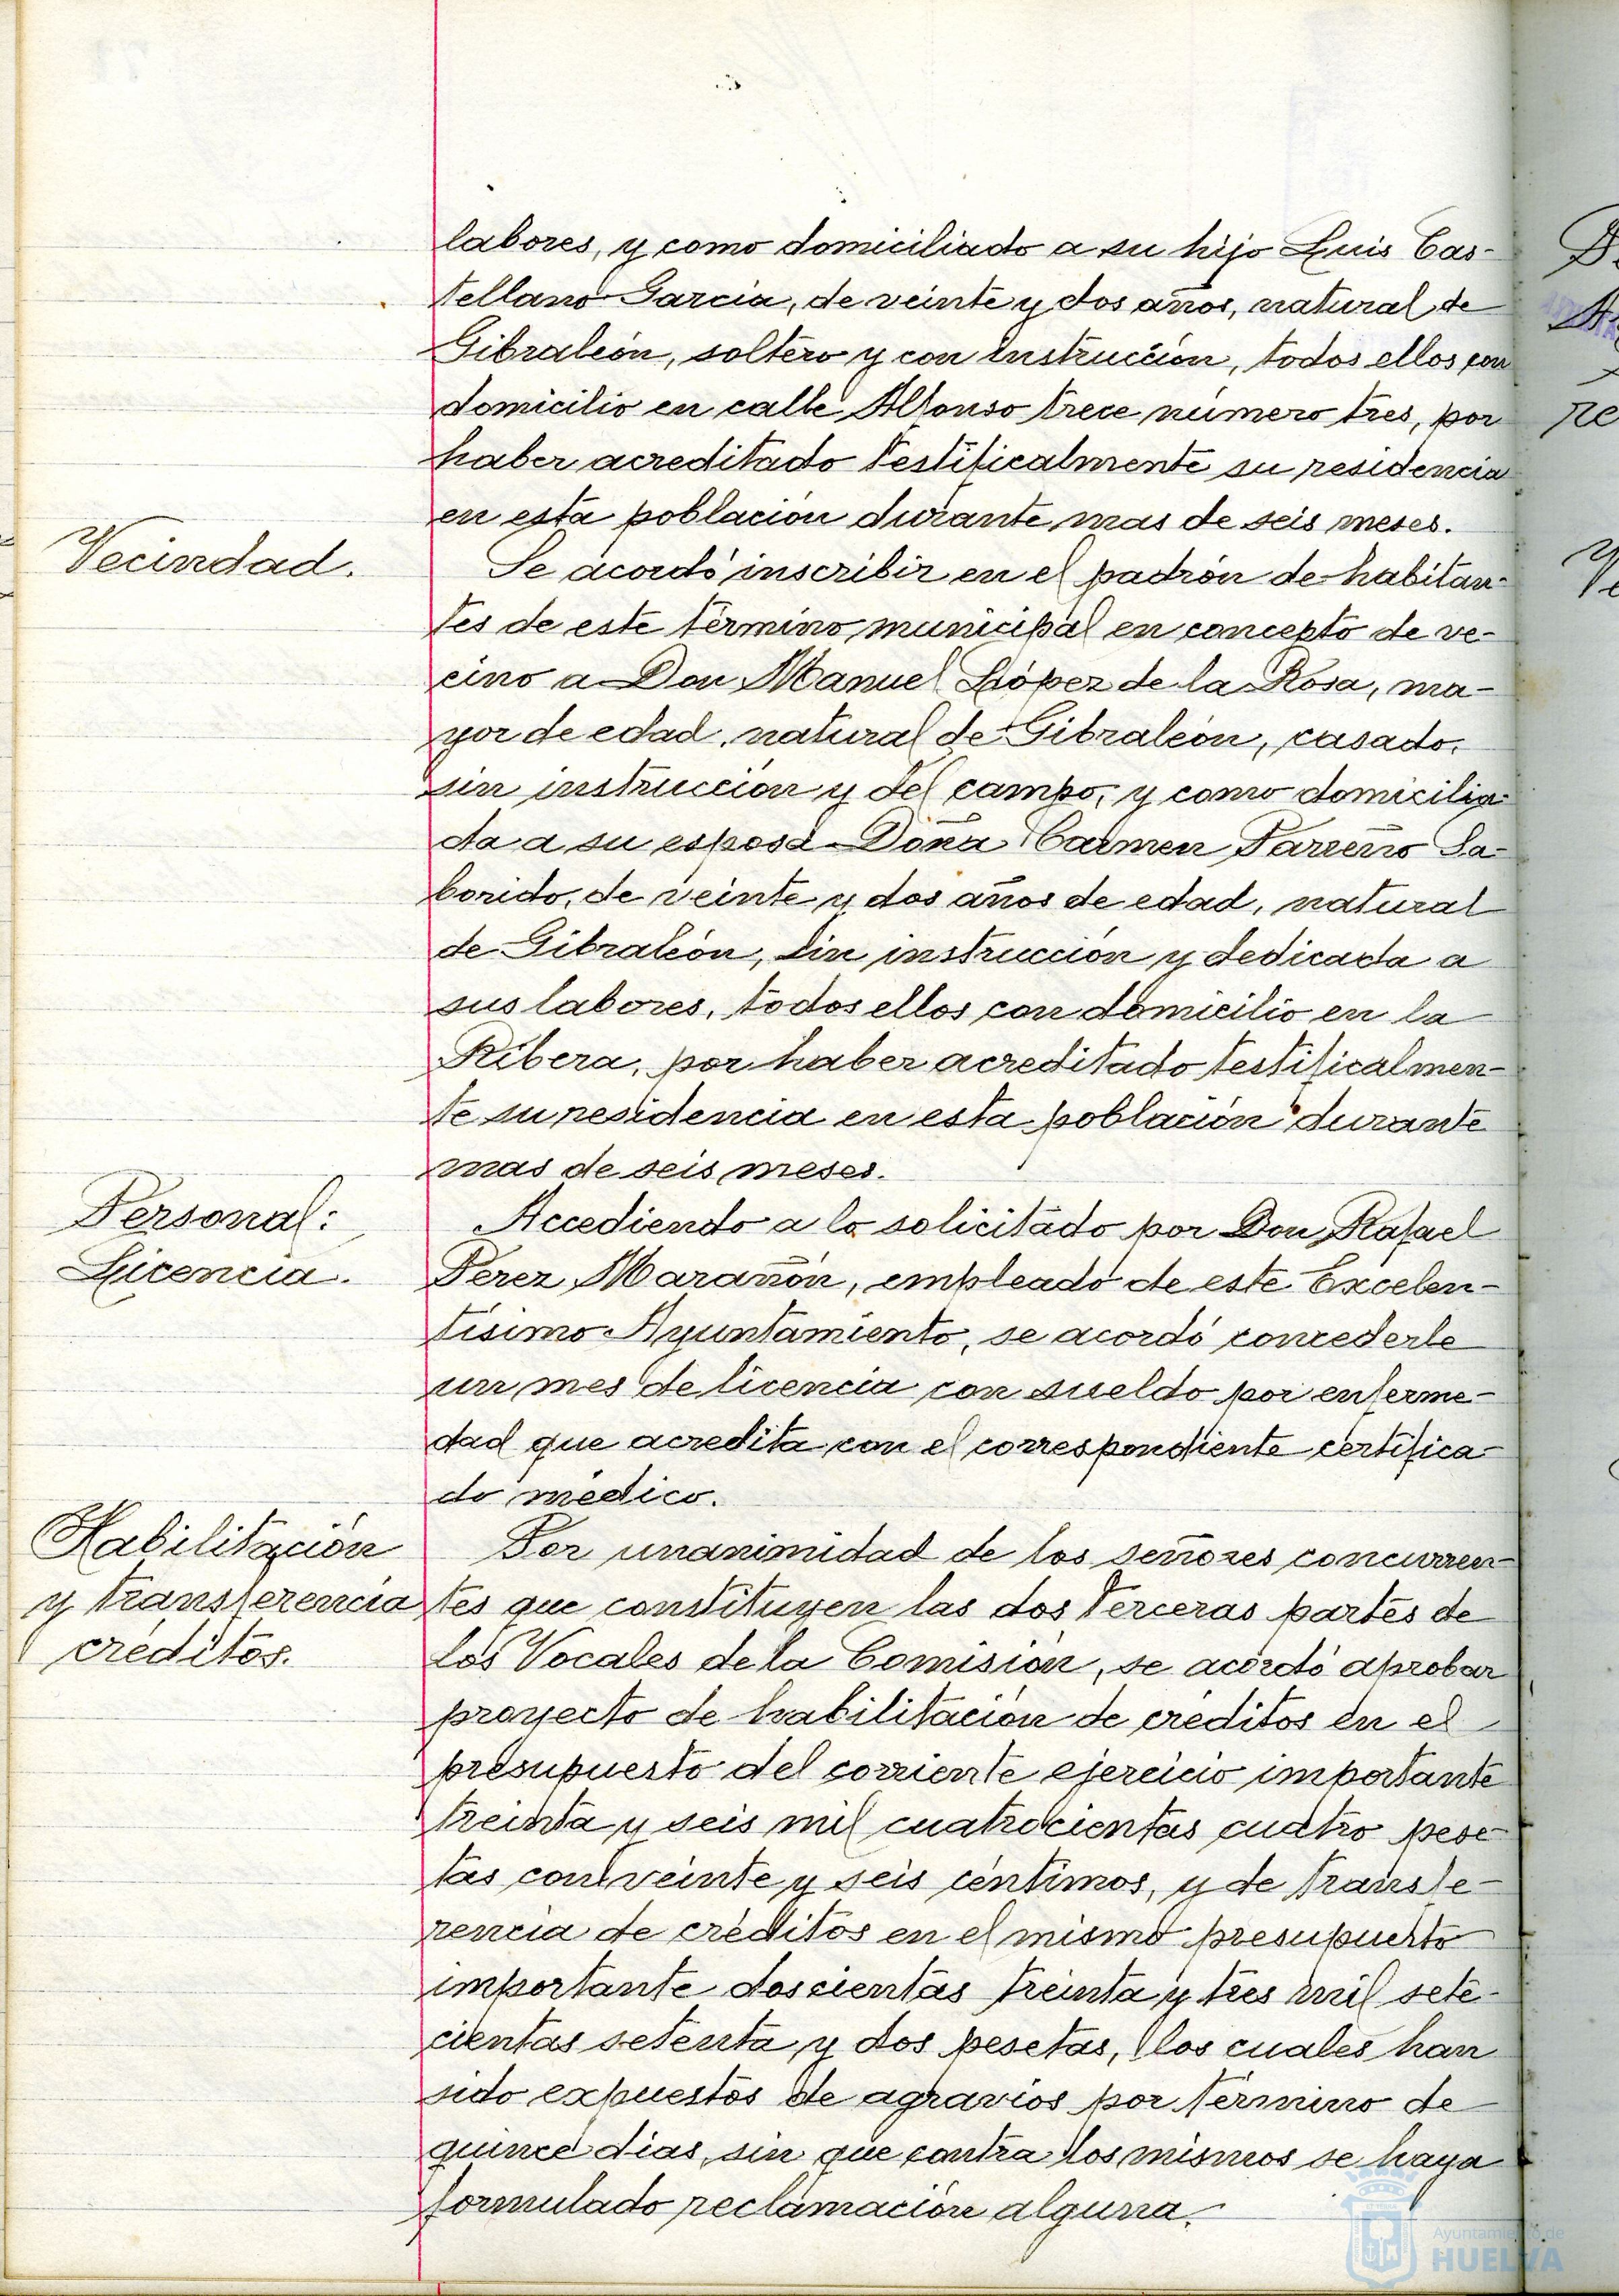 labores, y como domiciliado a su hijo Luis Cas-
tellano García, de veinte y dos años, natural de
Gibraleón, soltero y con instrucción, todos ellos con
domicilio en calle Alfonso trece número tres, por
haber acreditado testificalmente su residencia
en esta población durante mas de seis meses.
Vecindad.
Se acordó inscribir en el padrón de habitan-
tes de este término municipal en concepto de ve-
cino a Don Manuel López de la Rosa, ma-
yor de edad, natural de Gibraleón, casado,
sin instrucción y del campo, y como domicilia-
da a su esposa Doña Carmen Parreño Sa-
borido, de veinte y dos años de edad, natural
de Gibraleón, sin instrucción y dedicada a
sus labores, todos ellos con domicilio en la
Ribera, por haber acreditado testificalmen-
te su residencia en esta población durante
mas de seis meses.
Personal:
Licencia.
Accediendo a lo solicitado por Don Rafael
Perez Marañón, empleado de este Excelen-
tísimo Ayuntamiento, se acordó concederle
un mes de licencia con sueldo por enferme-
dad que acredita con el correspondiente certifica-
do médico.
Habilitación
y transferencia
créditos.
Por unanimidad de los señores concurren-
tes que constituyen las dos terceras partes de
los Vocales de la Comisión, se acordó aprobar
proyecto de habilitación de créditos en el
presupuesto del corriente ejercicio importante
treinta y seis mil cuatrocientas cuatro pese-
tas con veinte y seis céntimos, y de transfe-
rencia de créditos en el mismo presupuesto
importante doscientas treinta y tres mil sete-
cientas setenta y dos pesetas, los cuales han
sido expuestos de agravios por término de
quince dias, sin que contra los mismos se haya
formulado reclamación alguna.
Ayuntamiento de
HUELVA